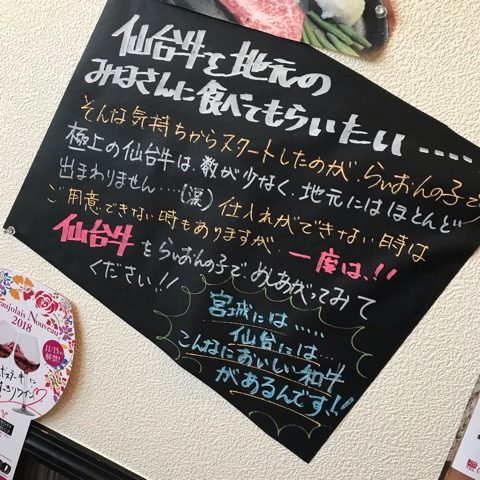 仙台牛を地元の
みなさんに食べてもらいたい‥‥
そんな気持ちからスタートしたのが、らいおんの子で
極上の仙台牛は、数が少なく、地元にはほとんど
出まわりません‥‥(涙) 仕入れができない時は
ご用意できない時もありますが、一度は、!!
仙台牛をらいおんの子で、めしあがってみて
ください!!
宮城には‥‥
仙台には‥‥
こんなにおいしい和牛
があるんです、!!
Beaujolais Nouveau
2018
11/15
解禁!